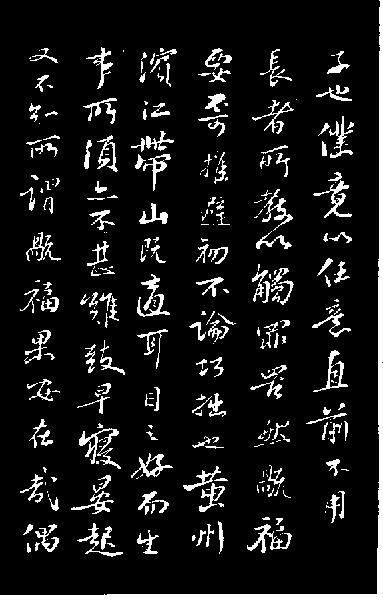 子也僕竟以任意直前不用
長者所教以觸罪罟然禍福
要不可推避初不論巧拙也黃州
濱江帶山既適耳目之好而生
事所須亦不甚難致早寢晏起
又不知所謂禍福果安在哉偶